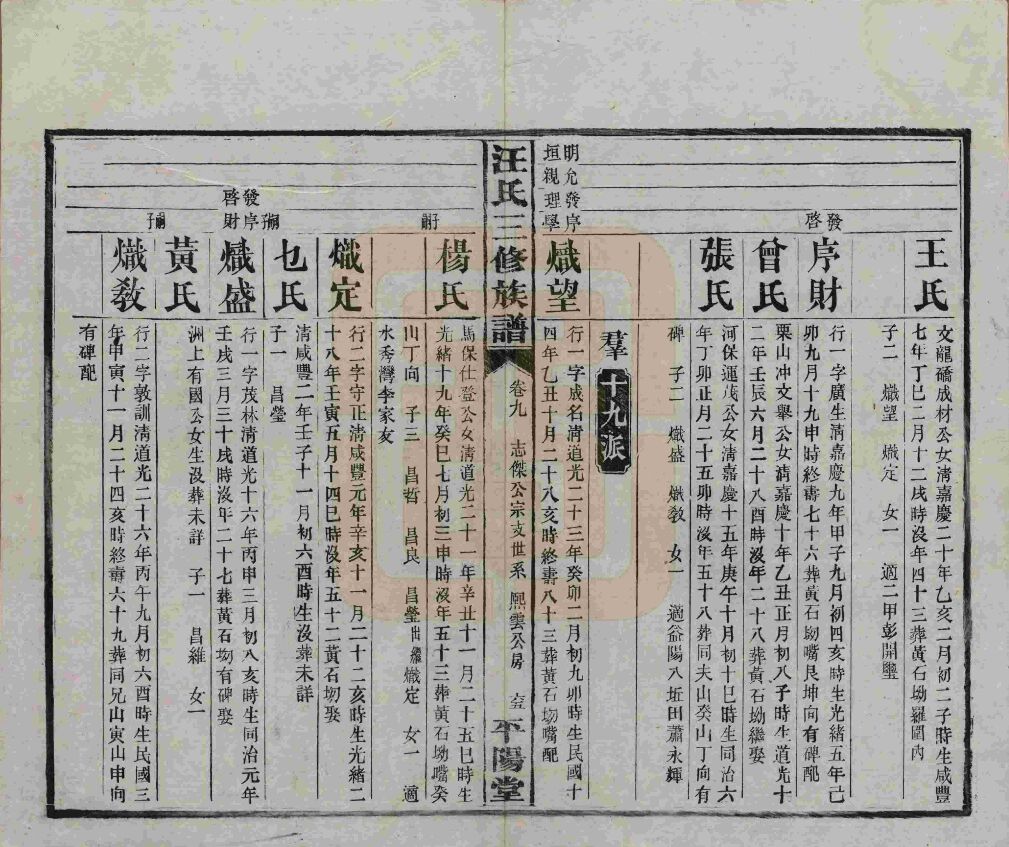 王氏
文龍礄成材公女淸嘉慶二十年乙亥二月初二子時生咸豐
七年丁巳二月十二戌時沒年四十三葬黃石坳羅圍內
子二　熾望　熾定　女一　適二甲彭開璽
發啓
序財
行一字廣生淸嘉慶九年甲子九月初四亥時生光緒五年己
卯九月十九申時終壽七十六葬黃石坳嘴艮坤向有碑配
曾氏
栗山冲文舉公女淸嘉慶十年乙丑正月初八子時生道光十
二年壬辰六月二十八酉時沒年二十八葬黃石坳繼娶
張氏
河保運茂公女淸嘉慶十五年庚午十月初十巳時生同治六
年丁卯正月二十五卯時沒年五十八葬同夫山癸山丁向有
碑　子二　熾盛　熾教　女一　適益陽八坵田蕭永輝
羣
十九派
明允發序
垣親理學
熾望
行一字成名淸道光二十三年癸卯二月初九卯時生民國十
四年乙丑十月二十八亥時終壽八十三葬黃石坳嘴配
汪氏三修族譜
卷九　志傑公宗支世系　熙雲公房　六五
平陽堂
子嗣
楊氏
馬保仕登公女淸道光二十一年辛丑十一月二十五巳時生
光緒十九年癸巳七月初三申時沒年五十三葬黃石坳嘴癸
山丁向　子三　昌哲　昌良　昌瑩出繼熾定　女一　適
水秀灣李家友
熾定
行二字守正淸咸豐元年辛亥十一月二十二亥時生光緒二
十八年壬寅五月十四巳時沒年五十二葬黃石坳娶
乜氏
淸咸豐二年壬子十一月初六酉時生沒葬未詳
子一　昌瑩
發啓
序財子嗣
熾盛
行一字茂林淸道光十六年丙申三月初八亥時生同治元年
壬戌三月三十戌時沒年二十七葬黃石坳有碑娶
黃氏
洲上有國公女生沒葬未詳　子一　昌維　女一
子嗣
熾教
行二字敦訓淸道光二十六年丙午九月初六酉時生民國三
年甲寅十一月二十四亥時終壽六十九葬同兄山寅山申向
有碑配